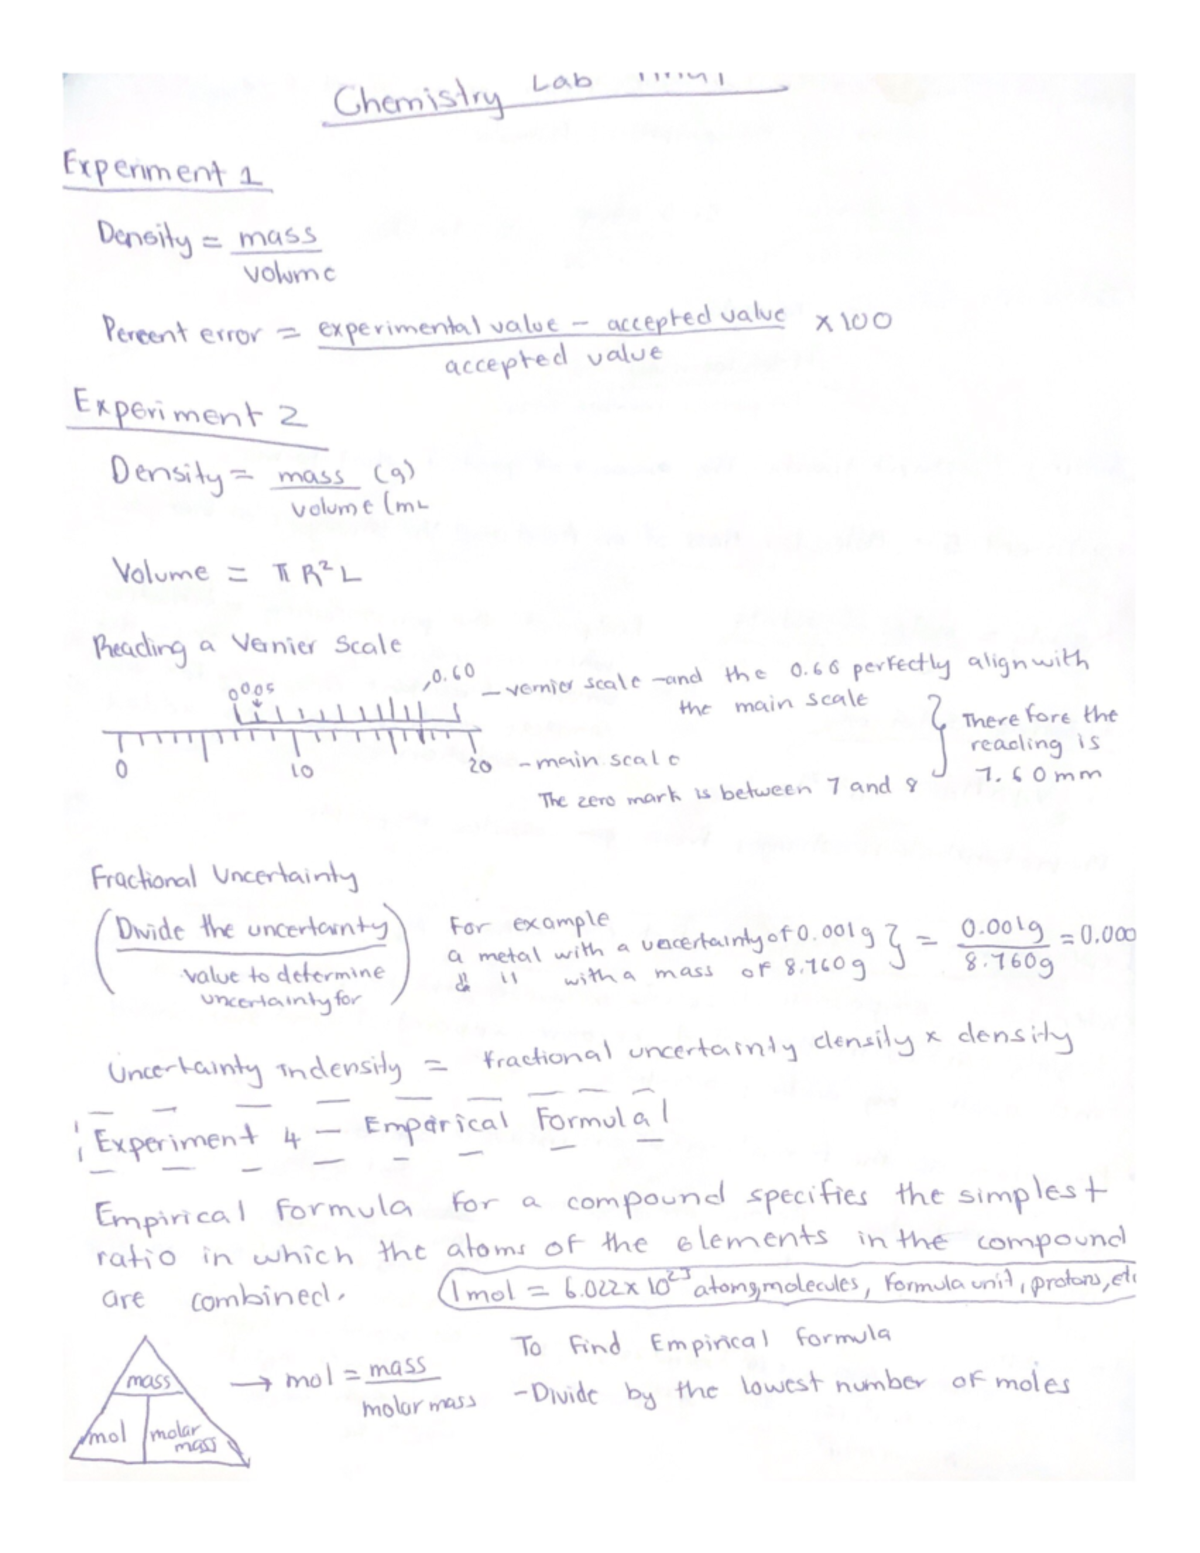 Chemistry Lab
Experiment 1
Density = mass
volume
Percent error = experimental value - accepted value x 100
accepted value
Experiment 2
Density = mass (g)
volume (mL
Volume = π R² L
Reading a Vernier Scale
0 0.05 0.60 - vernier scale - and the 0.60 perfectly align with
the main scale
0 10 20 - main scale
The zero mark is between 7 and 8
Therefore the
reading is
7.60mm
Fractional Uncertainty
(Divide the uncertainty)
value to determine
uncertainty for
For example
a metal with a uncertainty of 0.001g } = 0.001g = 0.000
" with a mass of 8.760g 8.760g
Uncertainty in density = fractional uncertainty density x density
Experiment 4 - Emparical Formula
Empirical Formula for a compound specifies the simplest
ratio in which the atoms of the elements in the compound
are combined.
1 mol = 6.022 x 10²³ atoms, molecules, formula unit, protons, etc
mass
mol molar
mass
→ mol = mass
molar mass
To Find Empirical Formula
- Divide by the lowest number of moles